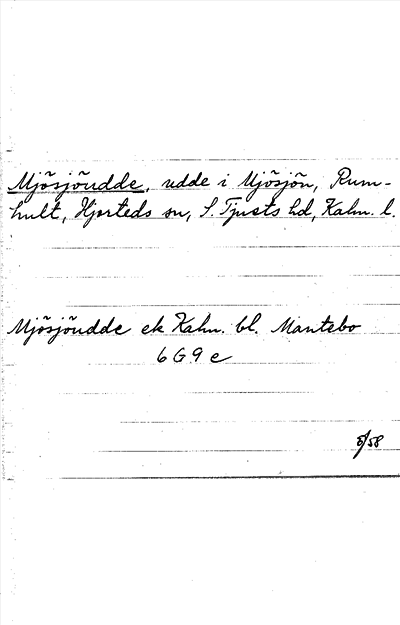 Mjösjöudde, udde i Mjösjön, Rum-
hult, Hjorteds sn, S. Tjusts hd, Kalm. l.
Mjösjöudde ek Kalm. bl. Mantebo
6 G 9 e
5/58